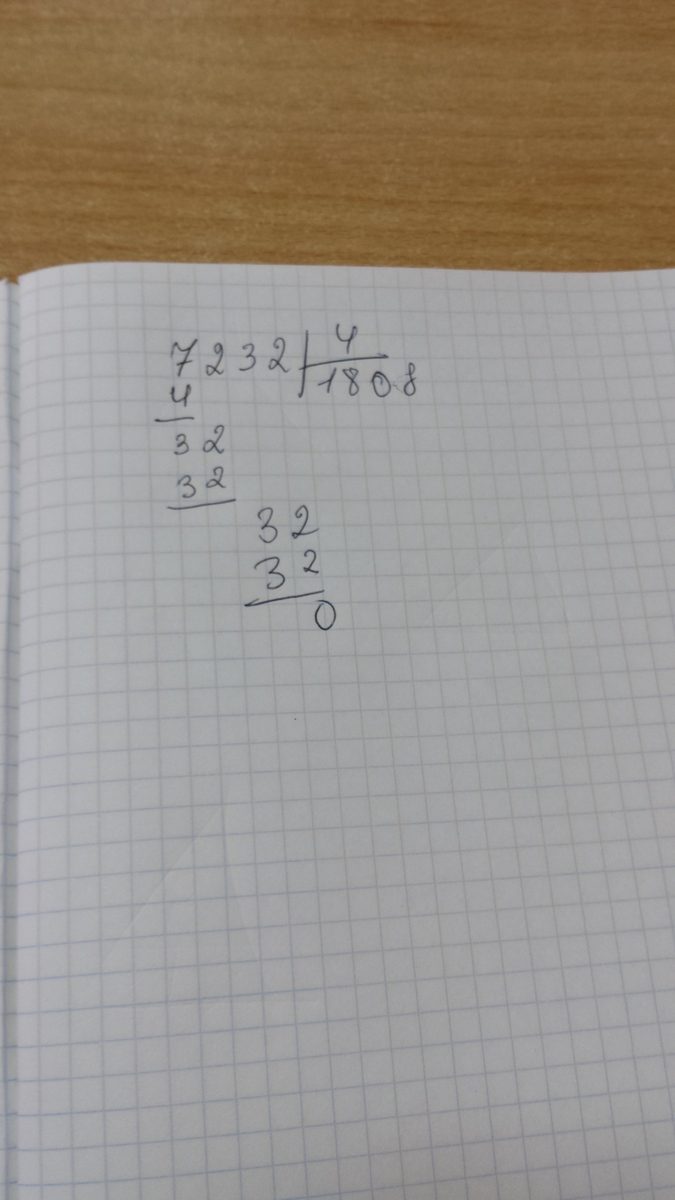 7232 4
4 1808
32
32
32
32
0